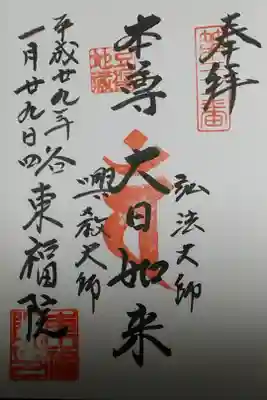 奉拝
弘法大師
本尊 大日如来
興教大師
四谷 東福院
平成廿九年
一月廿九日